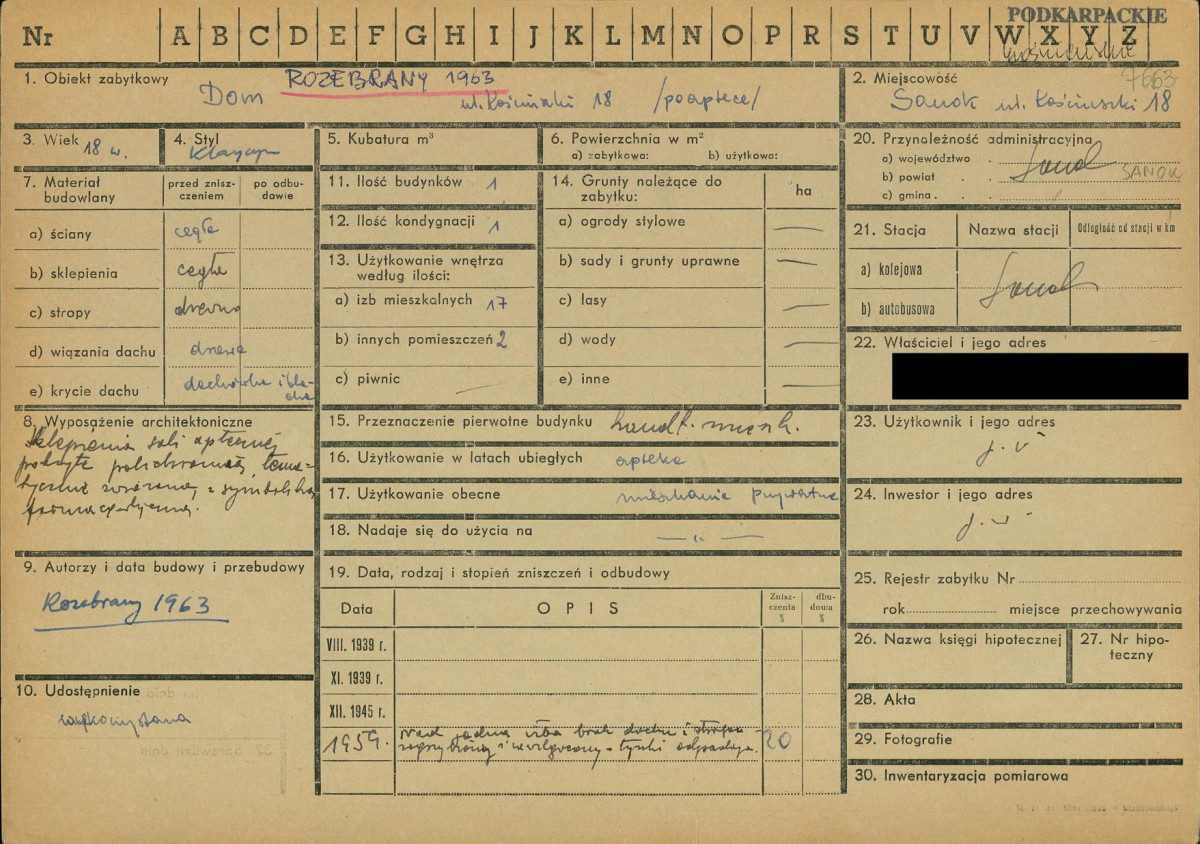 PODKARPACKIE
Nr A B C D E F G H I J K L M N O P R S T U V W X Y Z
7663
1. Obiekt zabytkowy
ROZEBRANY 1963
Dom
ul. Kościuszki 18 /po aptece/
2. Miejscowość
Sanok ul. Kościuszki 18
3. Wiek
18 w.
4. Styl
5. Kubatura m³
6. Powierzchnia w m²
a) zabytkowa: b) użytkowa:
7. Materiał budowlany
przed znisz-
czeniem
po odbu-
dowie
a) ściany cegła
b) sklepienia cegła
c) stropy drewno
d) wiązania dachu
e) krycie dachu dachówka i bla-
cha
8. Wyposażenie architektoniczne
Sklepienia sali aptecznej
pokryte polichromią, tema-
tycznie związaną z symboliką
farmaceutyczną.
9. Autorzy i data budowy i przebudowy
Rozebrany 1963
10. Udostępnienie
11. Ilość budynków 1
12. Ilość kondygnacji 1
13. Użytkowanie wnętrza
według ilości:
a) izb mieszkalnych 17
b) innych pomieszczeń 2
c) piwnic —
14. Grunty należące do
zabytku:
ha
a) ogrody stylowe —
b) sady i grunty uprawne —
c) lasy —
d) wody —
e) inne —
15. Przeznaczenie pierwotne budynku handl. mieszk.
16. Użytkowanie w latach ubiegłych apteka
17. Użytkowanie obecne mieszkanie prywatne
18. Nadaje się do użycia na — „ —
19. Data, rodzaj i stopień zniszczeń i odbudowy
Data OPIS
Znisz-
czenia
%
dbu-
dowa
%
VIII. 1939 r.
XI. 1939 r.
XII. 1945 r.
1959. nad jedną izbą brak dachu i strop
i zawilgocony - tynki odpadają. 20
20. Przynależność administracyjna
a) województwo
b) powiat Sanok SANOK
c) gmina
21. Stacja Nazwa stacji Odległość od stacji w km
a) kolejowa
Sanok
b) autobusowa
22. Właściciel i jego adres
23. Użytkownik i jego adres
j. w
24. Inwestor i jego adres
j. w
25. Rejestr zabytku Nr
rok miejsce przechowywania
26. Nazwa księgi hipotecznej
27. Nr hipo-
teczny
28. Akta
29. Fotografie
30. Inwentaryzacja pomiarowa